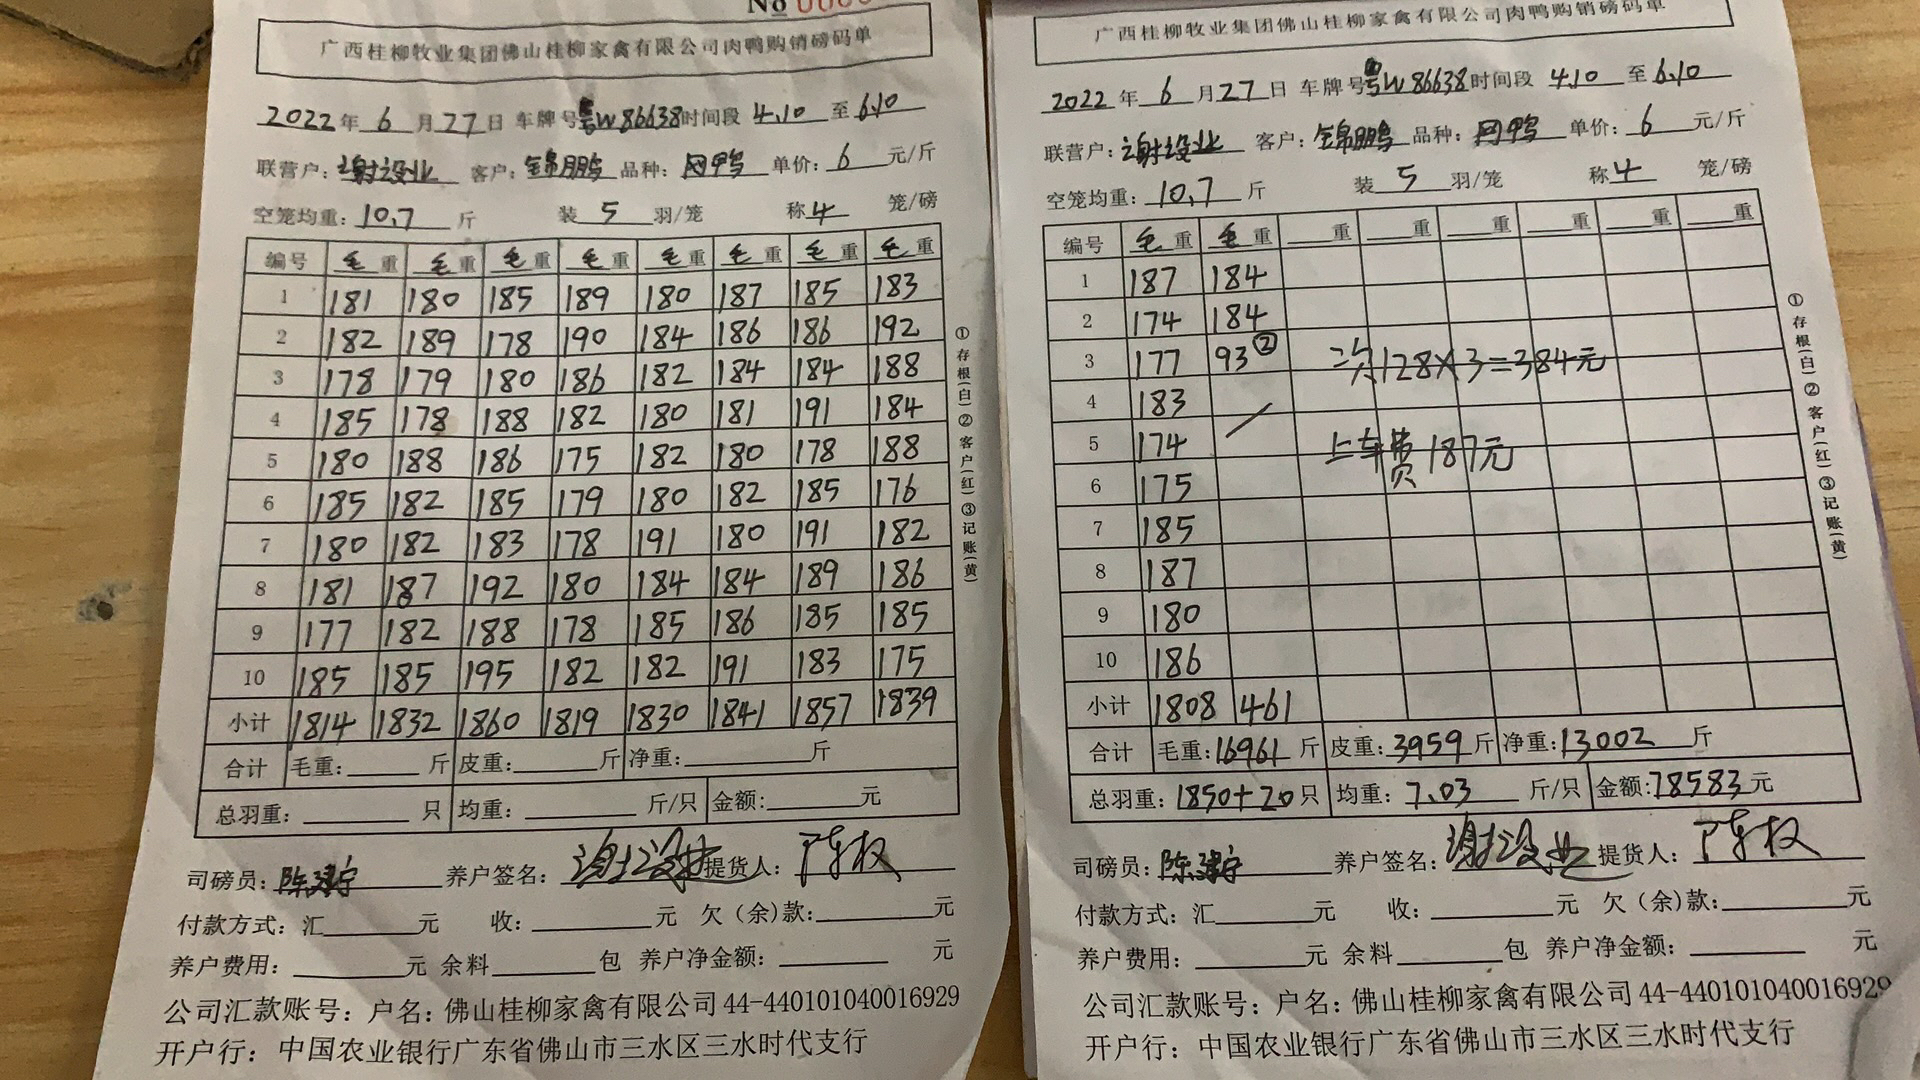 No
广西桂柳牧业集团佛山桂柳家禽有限公司肉鸭购销磅码单
2022年 6 月 27 日 车牌号粤W86638时间段 4.10 至 6.10
联营户: 谢设业 客户: 锦鹏 品种: 网鸭 单价: 6 元/斤
空笼均重: 10.7 斤 装 5 羽/笼 称 4 笼/磅
编号 毛重 毛重 毛重 毛重 毛重 毛重 毛重 毛重
1 181 180 185 189 180 187 185 183
2 182 189 178 190 184 186 186 192
3 178 179 180 186 182 184 184 188
4 185 178 188 182 180 181 191 184
5 180 188 186 175 182 180 178 188
6 185 182 185 179 180 182 185 176
7 180 182 183 178 191 180 191 182
8 181 187 192 180 184 184 189 186
9 177 182 188 178 185 186 185 185
10 185 185 195 182 182 191 183 175
小计 1814 1832 1860 1819 1830 1841 1857 1839
合计 毛重: 斤 皮重: 斤 净重: 斤
总羽重: 只 均重: 斤/只 金额: 元
司磅员: 陈建宇 养户签名: 谢设业 提货人: 陈权
付款方式: 汇 元 收: 元 欠(余)款: 元
养户费用: 元 余料 包 养户净金额: 元
公司汇款账号: 户名: 佛山桂柳家禽有限公司 44-440101040016929
开户行: 中国农业银行广东省佛山市三水区三水时代支行
①存根(白)②客户(红)③记账(黄)
广西桂柳牧业集团佛山桂柳家禽有限公司肉鸭购销磅码单
2022 年 6 月 27 日 车牌号粤W86638时间段 4.10 至 6.10
联营户: 谢设业 客户: 锦鹏 品种: 网鸭 单价: 6 元/斤
空笼均重: 10.7 斤 装 5 羽/笼 称 4 笼/磅
编号 毛重 毛重 重 重 重 重 重 重
1 187 184
2 174 184
3 177 93② 次128×3=384元
4 183
5 174 上车费187元
6 175
7 185
8 187
9 180
10 186
小计 1808 461
合计 毛重: 16961 斤 皮重: 3959 斤 净重: 13002 斤
总羽重: 1850+20 只 均重: 7.03 斤/只 金额: 78583 元
司磅员: 陈建宇 养户签名: 谢设业 提货人: 陈权
付款方式: 汇 元 收: 元 欠(余)款: 元
养户费用: 元 余料 包 养户净金额: 元
公司汇款账号: 户名: 佛山桂柳家禽有限公司 44-440101040016929
开户行: 中国农业银行广东省佛山市三水区三水时代支行
①存根(白)②客户(红)③记账(黄)